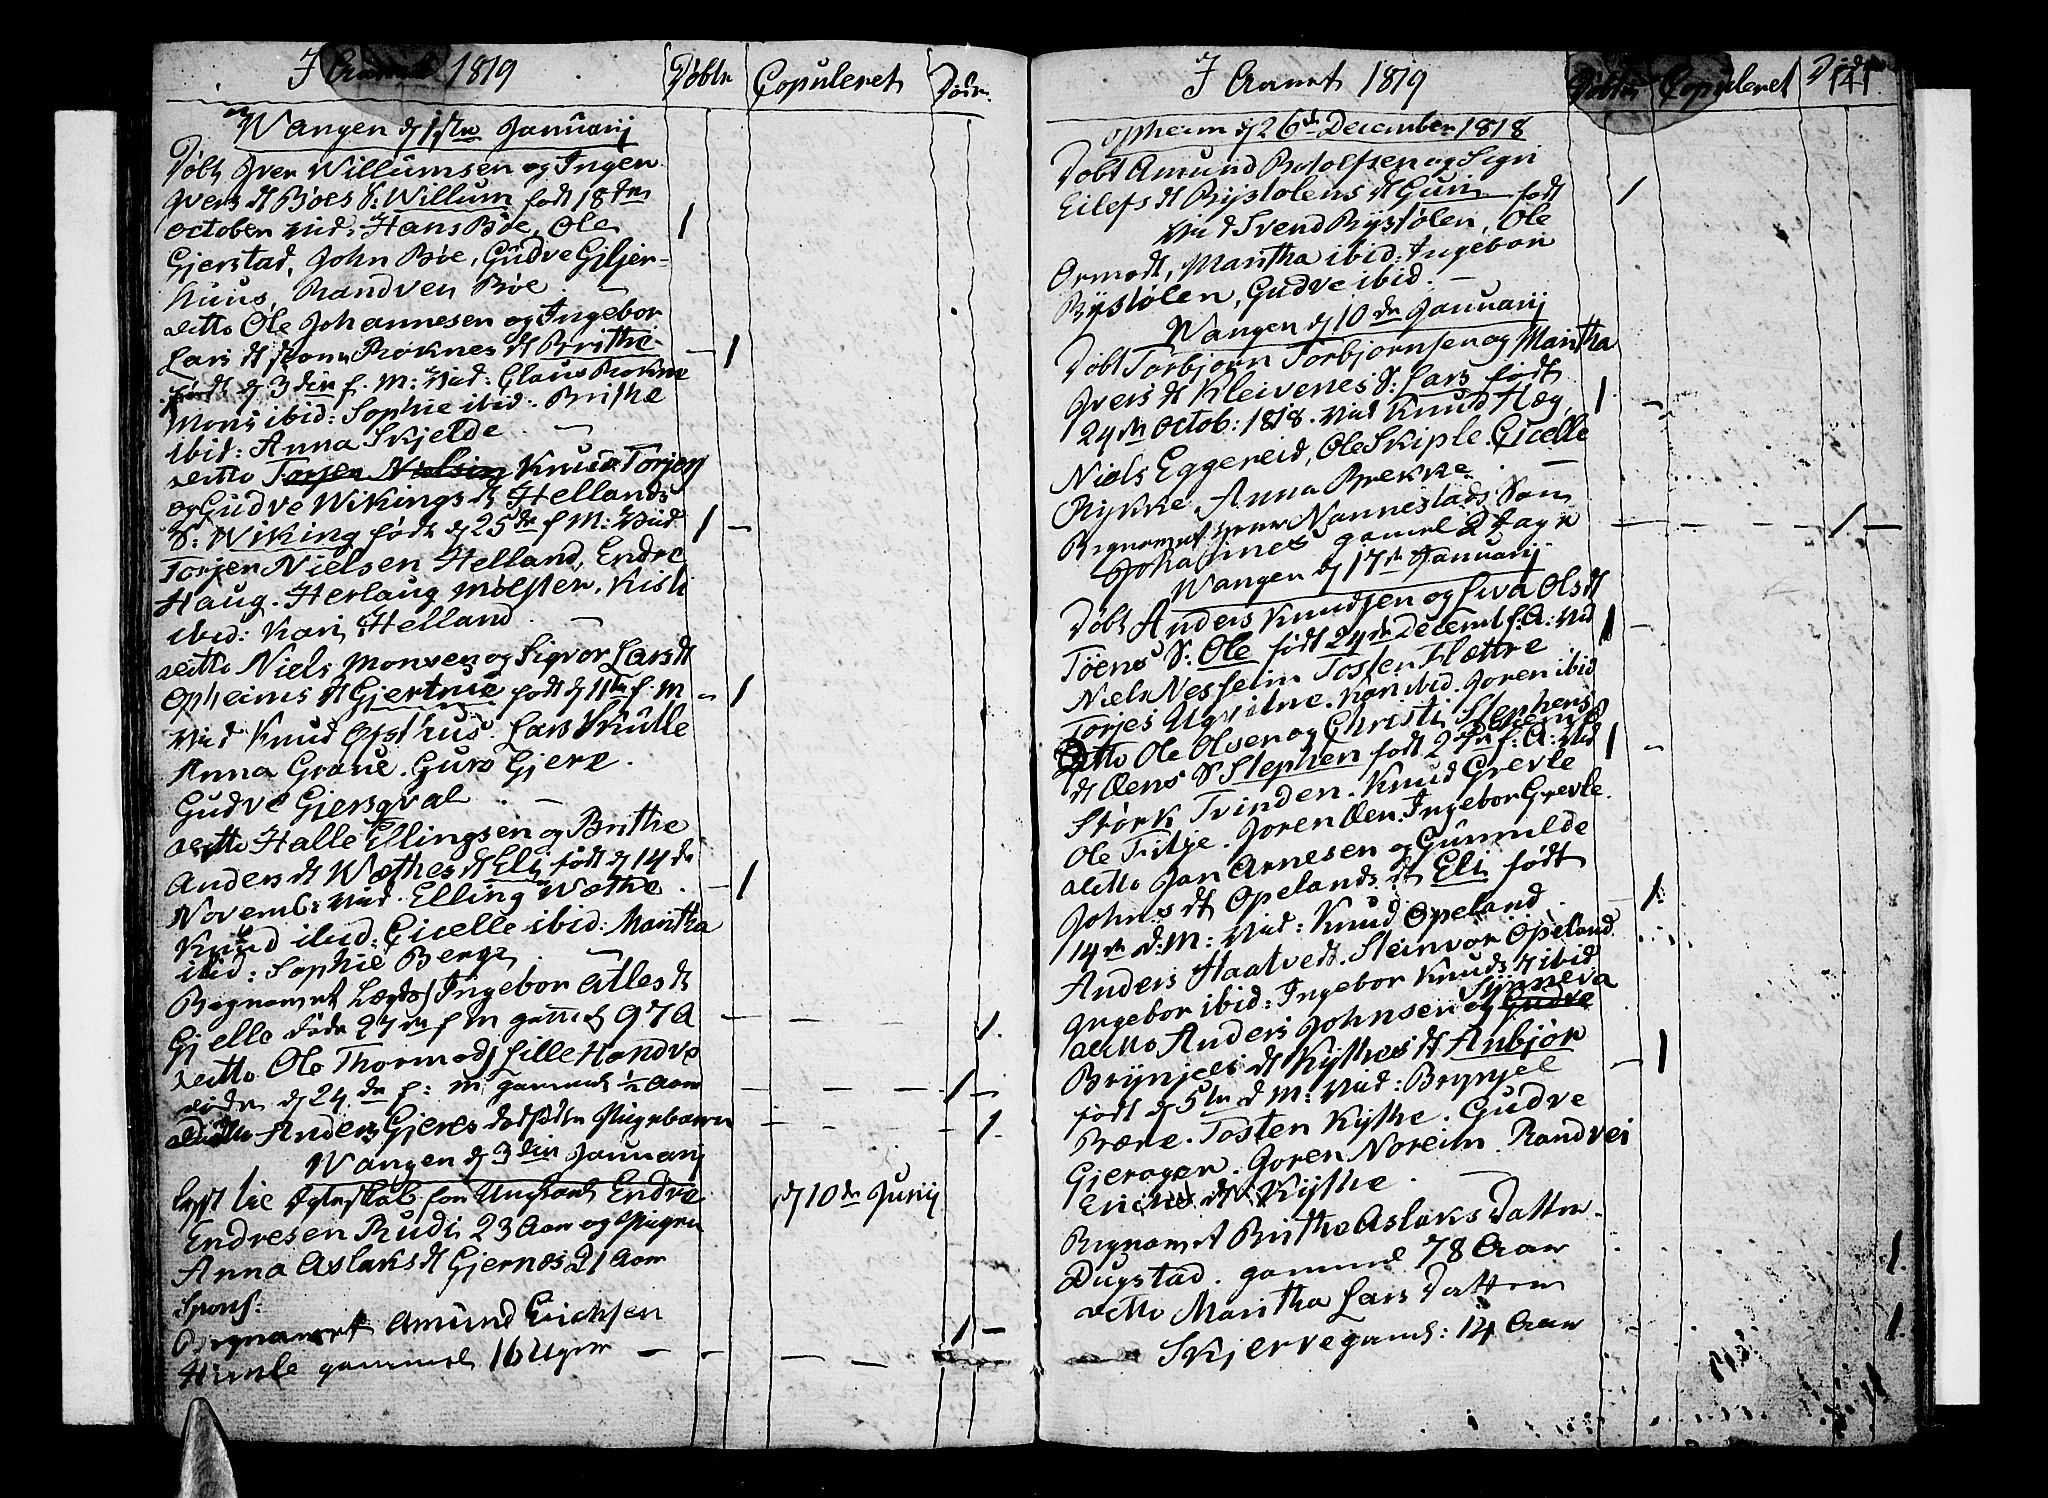 I Aaret 1819 Døbte Copuleret Døde.
Wangen d 1ste Januarij
Døbt Iver Willumsen og Ingen
Ivers dt Bøes S: Willum født 18de
October vid: Hans Bøe, Ole
Gjerstad, John Bøe, Gudve Giljer-
huus, Randvei Bøe.
ditto Ole Johannesen og Ingebor
Lars dt Røknes dt Brithe
født d 3die f. M: vid: Claus Rokne
Mons ibid: Sophie ibid. Brithe
ibid: Anna Skjelde
ditto Torjer Nielsen Knud Torjers
og Gudve Wikings dt Hellands
S: Wiking født d 25de f M: Vid
Torjer Nielsen Helland, Endre
Haug. Herlaug Mølster. Kisti
ibid: Kari Helland
ditto Niels Monsen og Sigvor Lars dt
Opheims dt Gjertrue født d 11te f. M
Vid Knud Ofsthus. Lars Skulle
Anna Graue. Guro Gjere.
Gudve Gjersqval
ditto Halle Ellingsen og Brithe
Anders dt Wæthes dt Eli født d 14de
Novemb: vid. Elling Wæthe.
Knud ibid: Gicelle ibid: Maritha
ibid: Sophie Berge
Begravet Lægds Ingebor Atles dt
Gjelle døde 27de f M gaml 97 A
ditto Ole Thormods Lille Handve
døde d 24de f: M gammel 1/2 Aar
ditto Anders Gjeres dødfødte Pigebarn
Wangen d 3die Januarij
Lyst til Egteskab for Ungkarl Endre d 10de Junij
Endresen Rudi 23 Aar og Pigen
Anna Aslaks dt Gjernes 21 Aar
Spons:
Begravet Amund Erichsen
Himle gammel 16 Uger
I Aaret 1819 Døbte Copuleret Døde 141
Opheim d 26de December 1818
Døbt Amund Botolfsen og Sigri
Eilefs dt Rystølens dt Guri født
Vid Svend Rystølen, Ole
Ormodt, Maritha ibid: Ingebori
Rystølen, Gudve ibid.
Wangen d 10de Januarij
Døbt Torbjørn Torbjørnsen og Maritha
Ivers dt Kleivenes S: Lars født
24de Octob: 1818. Vid Knud Hæg,
Niels Eggereid, Ole Skiple. Gicelle
Rykke, Anna Brekke.
Begravet Nannestads Søn
Johannes gamel 2 Dage
Wangen d 17de Januarij
Døbt Anders Knudsen og Siva Ols dt
Tøens S: Ole født 24de Decemb f: A: Vid
Niels Nesheim Tosten Flættre
Torjes Kari ibid. Joren ibid
Ditto Ole Olsen og Christi Stephens
dt Øens S Stephen født 27de f: A: Vid
Størk Tvinden. Knud Grevle
Ole Fitje. Joren Øen. Ingebor Grevle.
ditto Jan Arnesen og Gunnilde
Johns dt Opelands dt Eli født
14de d: M: Vid: Knud Opeland
Anders Haatvedt. Steinvor Opeland.
Ingebor ibid: Ingebor Knuds dt ibid
ditto Anders Johnsen og Gudve Synneva
Brynjels dt Kythes dt Anbjør
født d 5te d M: Vid: Brynjel
Bære. Tosten Kythe. Gudve
Gjerager. Joren Noreim. Randvei
Erichs dt Kythe.
Begravet Brithe Aslaks Datter
Dugstad. gammel 78 Aar
ditto Maritha Lars Datter
Skjerve gaml: 14 Aar